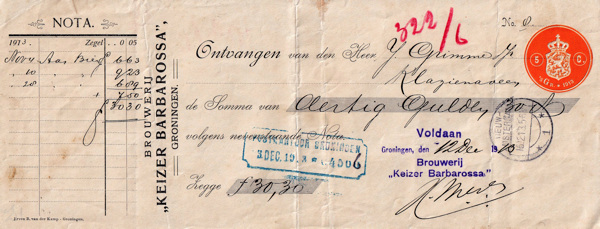 NOTA.
1913 Zegel 0 05
Novr 4 Aan Bier 6.63
" 10 " " 9.23
" 28 " " 6.09
" " 7.50
f 30.30
Erven B. van der Kamp - Groningen.
BROUWERIJ
„KEIZER BARBAROSSA”,
GRONINGEN.
322/6
No. 0.
Ontvangen van den Heer J. Grimme Jr
Klazienaveen
de Somma van Dertig Gulden 30
volgens nevenstaande Nota
Zegge f 30,30
POSTKANTOOR GRONINGEN
3.DEC.19.3 4506
Voldaan
Groningen, 12 Dec 1913
Brouwerij
„Keizer Barbarossa”
5 C.